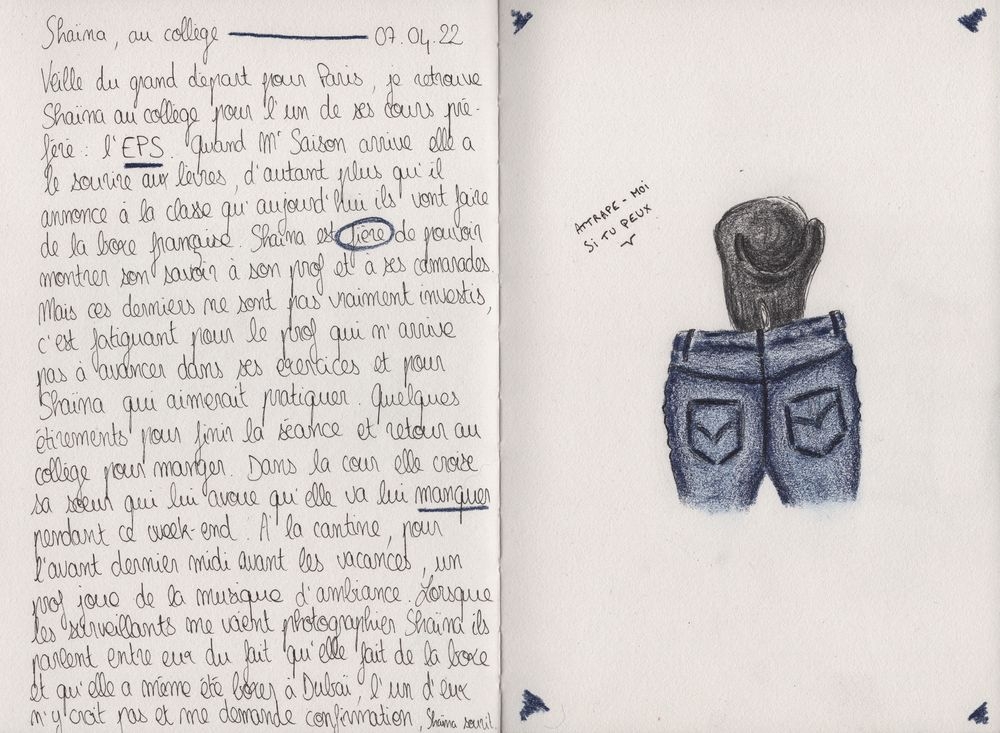 Shaïna, au collège 07.04.22
Veille du grand départ pour Paris, je retrouve
Shaïna au collège pour l'un de ses cours pré-
féré : l'EPS. Quand Mr Saison arrive elle a
le sourire aux lèvres, d'autant plus qu'il
annonce à la classe qu'aujourd'hui ils vont faire
de la boxe française. Shaïna est fière de pouvoir
montrer son savoir à son prof et à ses camarades.
Mais ces derniers ne sont pas vraiment investis,
c'est fatiguant pour le prof qui n'arrive
pas à avancer dans ses exercices et pour
Shaïna qui aimerait pratiquer. Quelques
étirements pour finir la séance et retour au
collège pour manger. Dans la cour elle croise
sa sœur qui lui avoue qu'elle va lui manquer
pendant ce week-end. A la cantine, pour
l'avant dernier midi avant les vacances, un
prof joue de la musique d'ambiance. Lorsque
les surveillants me voient photographier Shaïna ils
parlent entre eux du fait qu'elle fait de la boxe
et qu'elle a même été boxer à Dubaï, l'un d'eux
n'y croit pas et me demande confirmation, Shaïna sourit.
ATTRAPE-MOI
SI TU PEUX